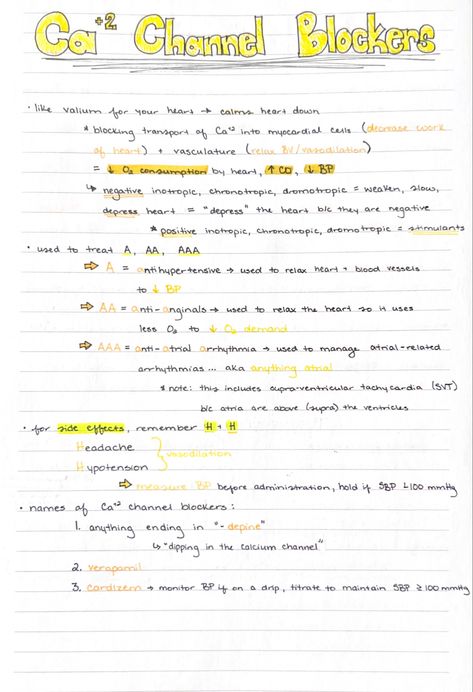 Ca+2 Channel Blockers
• like valium for your heart → calms heart down
* blocking transport of Ca+2 into myocardial cells (decrease work
of heart) + vasculature (relax BV/vasodilation)
= ↓ O2 consumption by heart, ↑ CO, ↓ BP
↳ negative inotropic, chronotropic, dromotropic = weaken, slow,
depress heart = "depress" the heart b/c they are negative
* positive inotropic, chronotropic, dromotropic = stimulants
• used to treat A, AA, AAA
⇨ A = antihypertensive → used to relax heart + blood vessels
to ↓ BP
⇨ AA = anti-anginals → used to relax the heart so it uses
less O2 to ↓ O2 demand
⇨ AAA = anti-atrial arrhythmia → used to manage atrial-related
arrhythmias... aka anything atrial
* note: this includes supra-ventricular tachycardia (SVT)
b/c atria are above (supra) the ventricles
• for side effects, remember H + H
Headache
Hypotension } vasodilation
⇨ measure BP before administration, hold if SBP <100 mmHg
• names of Ca+2 channel blockers:
1. anything ending in "-depine"
↳ "dipping in the calcium channel"
2. verapamil
3. cardizem → monitor BP if on a drip, titrate to maintain SBP ≥100 mmHg